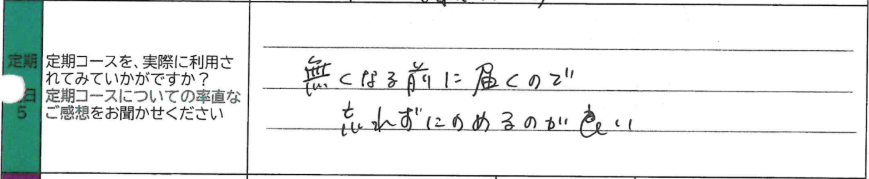 定期
日
5
定期コースを、実際に利用さ
れてみていかがですか？
定期コースについての率直な
ご感想をお聞かせください
無くなる前に届くので
忘れずにのめるのが良い